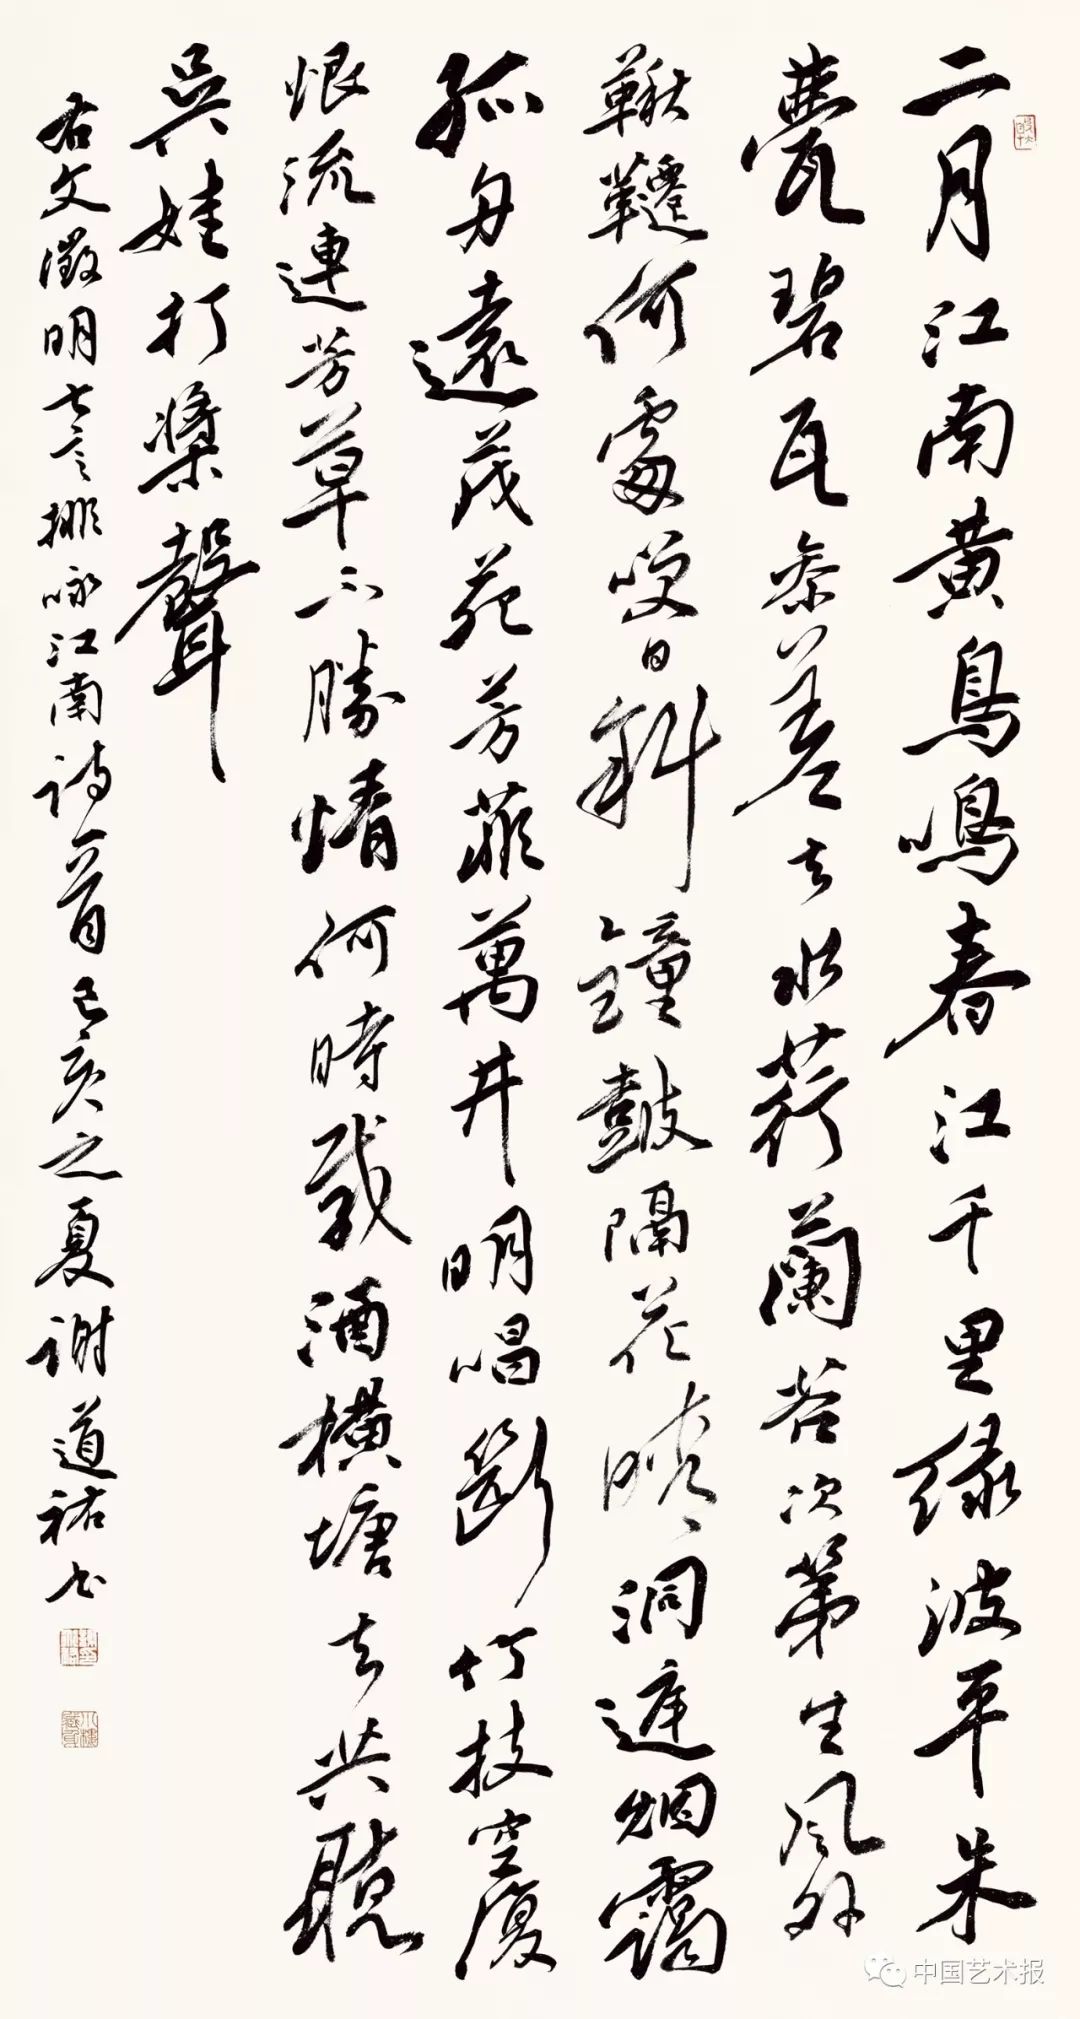 二月江南黄鳥鳴春江千里緑波平朱
甍碧瓦参差去水荇蘭苕次第生風外
鞦韆何處笑日斜鐘鼓隔花晴洞庭烟靄
孤舟遠茂苑芳菲萬井明唱斷竹枝空復
恨流連芳草不勝情何時載酒橫塘去共聽
吳娃打槳聲
右文徵明七言排咏江南詩一首己亥之夏謝道祐书
中国艺术报